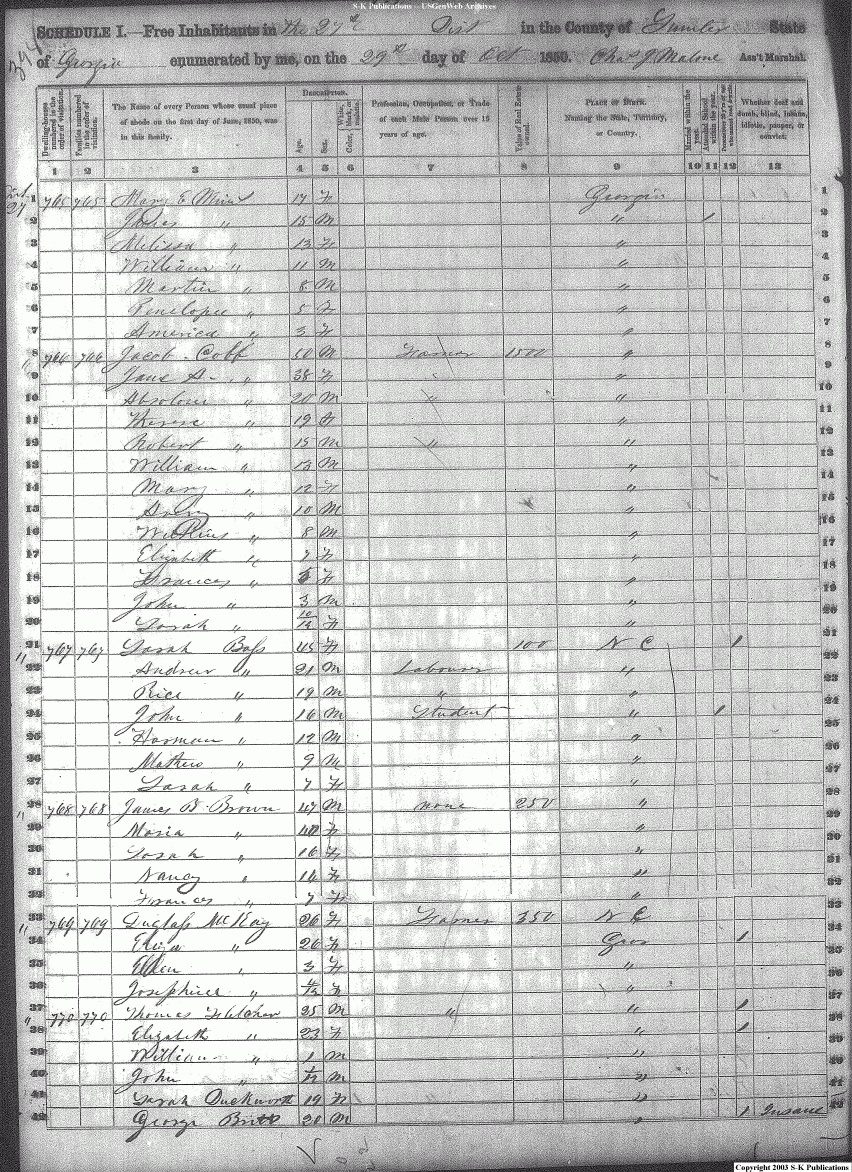 S-K Publications -- USGenWeb Archives
SCHEDULE I.—Free Inhabitants in The 27th Dist in the County of Sumter State
of Georgia enumerated by me, on the 29th day of Oct 1850. Chas J Malone Ass't Marshal.
Dwelling-houses numbered in the order of visitation.
Families numbered in the order of visitation.
The Name of every Person whose usual place of abode on the first day of June, 1850, was in this family.
Description.
Age.
Sex.
White, black, or mulatto. Color,
Profession, Occupation, or Trade of each Male Person over 15 years of age.
Value of Real Estate owned.
Place of Birth. Naming the State, Territory, or Country.
Married within the year.
Attended School within the year.
Whether deaf and dumb, blind, insane, idiotic, pauper, or convict.
1 2 3 4 5 6 7 8 9 10 11 12 13
1 765 765 Mary E 17 F Georgia 1
2 James " 15 M " / 2
3 Melissa " 13 F " 3
4 William " 11 M " 4
5 Martin " 8 M " 5
6 Penelope " 5 F " 6
7 America " 3 F " 7
8 766 766 Jacob Cobb 50 M Farmer 1500 " 8
9 Jane A " 38 F " 9
10 Absolom " 20 M " " 10
11 " 19 F " 11
12 Robert " 15 M " " 12
13 William " 13 M " 13
14 Mary " 12 F " 14
15 " 10 M " 15
16 " 8 M " 16
17 Elizabeth " 7 F " 17
18 Frances " F " 18
19 John " 3 M " 19
20 Sarah " 10/12 F " 20
21 767 767 Sarah Bass 45 F 100 N C 1 21
22 Andrew " 21 M Labourer " 22
23 Rice " 19 M " " 23
24 John " 16 M Student " 1 24
25 Harman " 12 M " 25
26 Mathew " 9 M " 26
27 Sarah " 7 F " 27
28 768 768 James B Brown 47 M none 250 " 28
29 Maria " F " 29
30 Sarah " 16 F " 30
31 Nancy " F " 31
32 Frances " 7 F " 32
33 769 769 Duglass McKay 26 F Farmer 350 N C 33
34 Eliza " 26 F Geo 1 34
35 Ellen " 3 F " 35
36 Josephine " F " 36
37 770 770 Thomas Fletcher 25 M " " 1 37
38 Elizabeth " 23 F " 1 38
39 William " 1 M " 39
40 John " M " 40
41 Sarah Duckworth 19 F " 41
42 George Britt 20 M " 1 Insane 42
Copyright 2003 S-K Publications